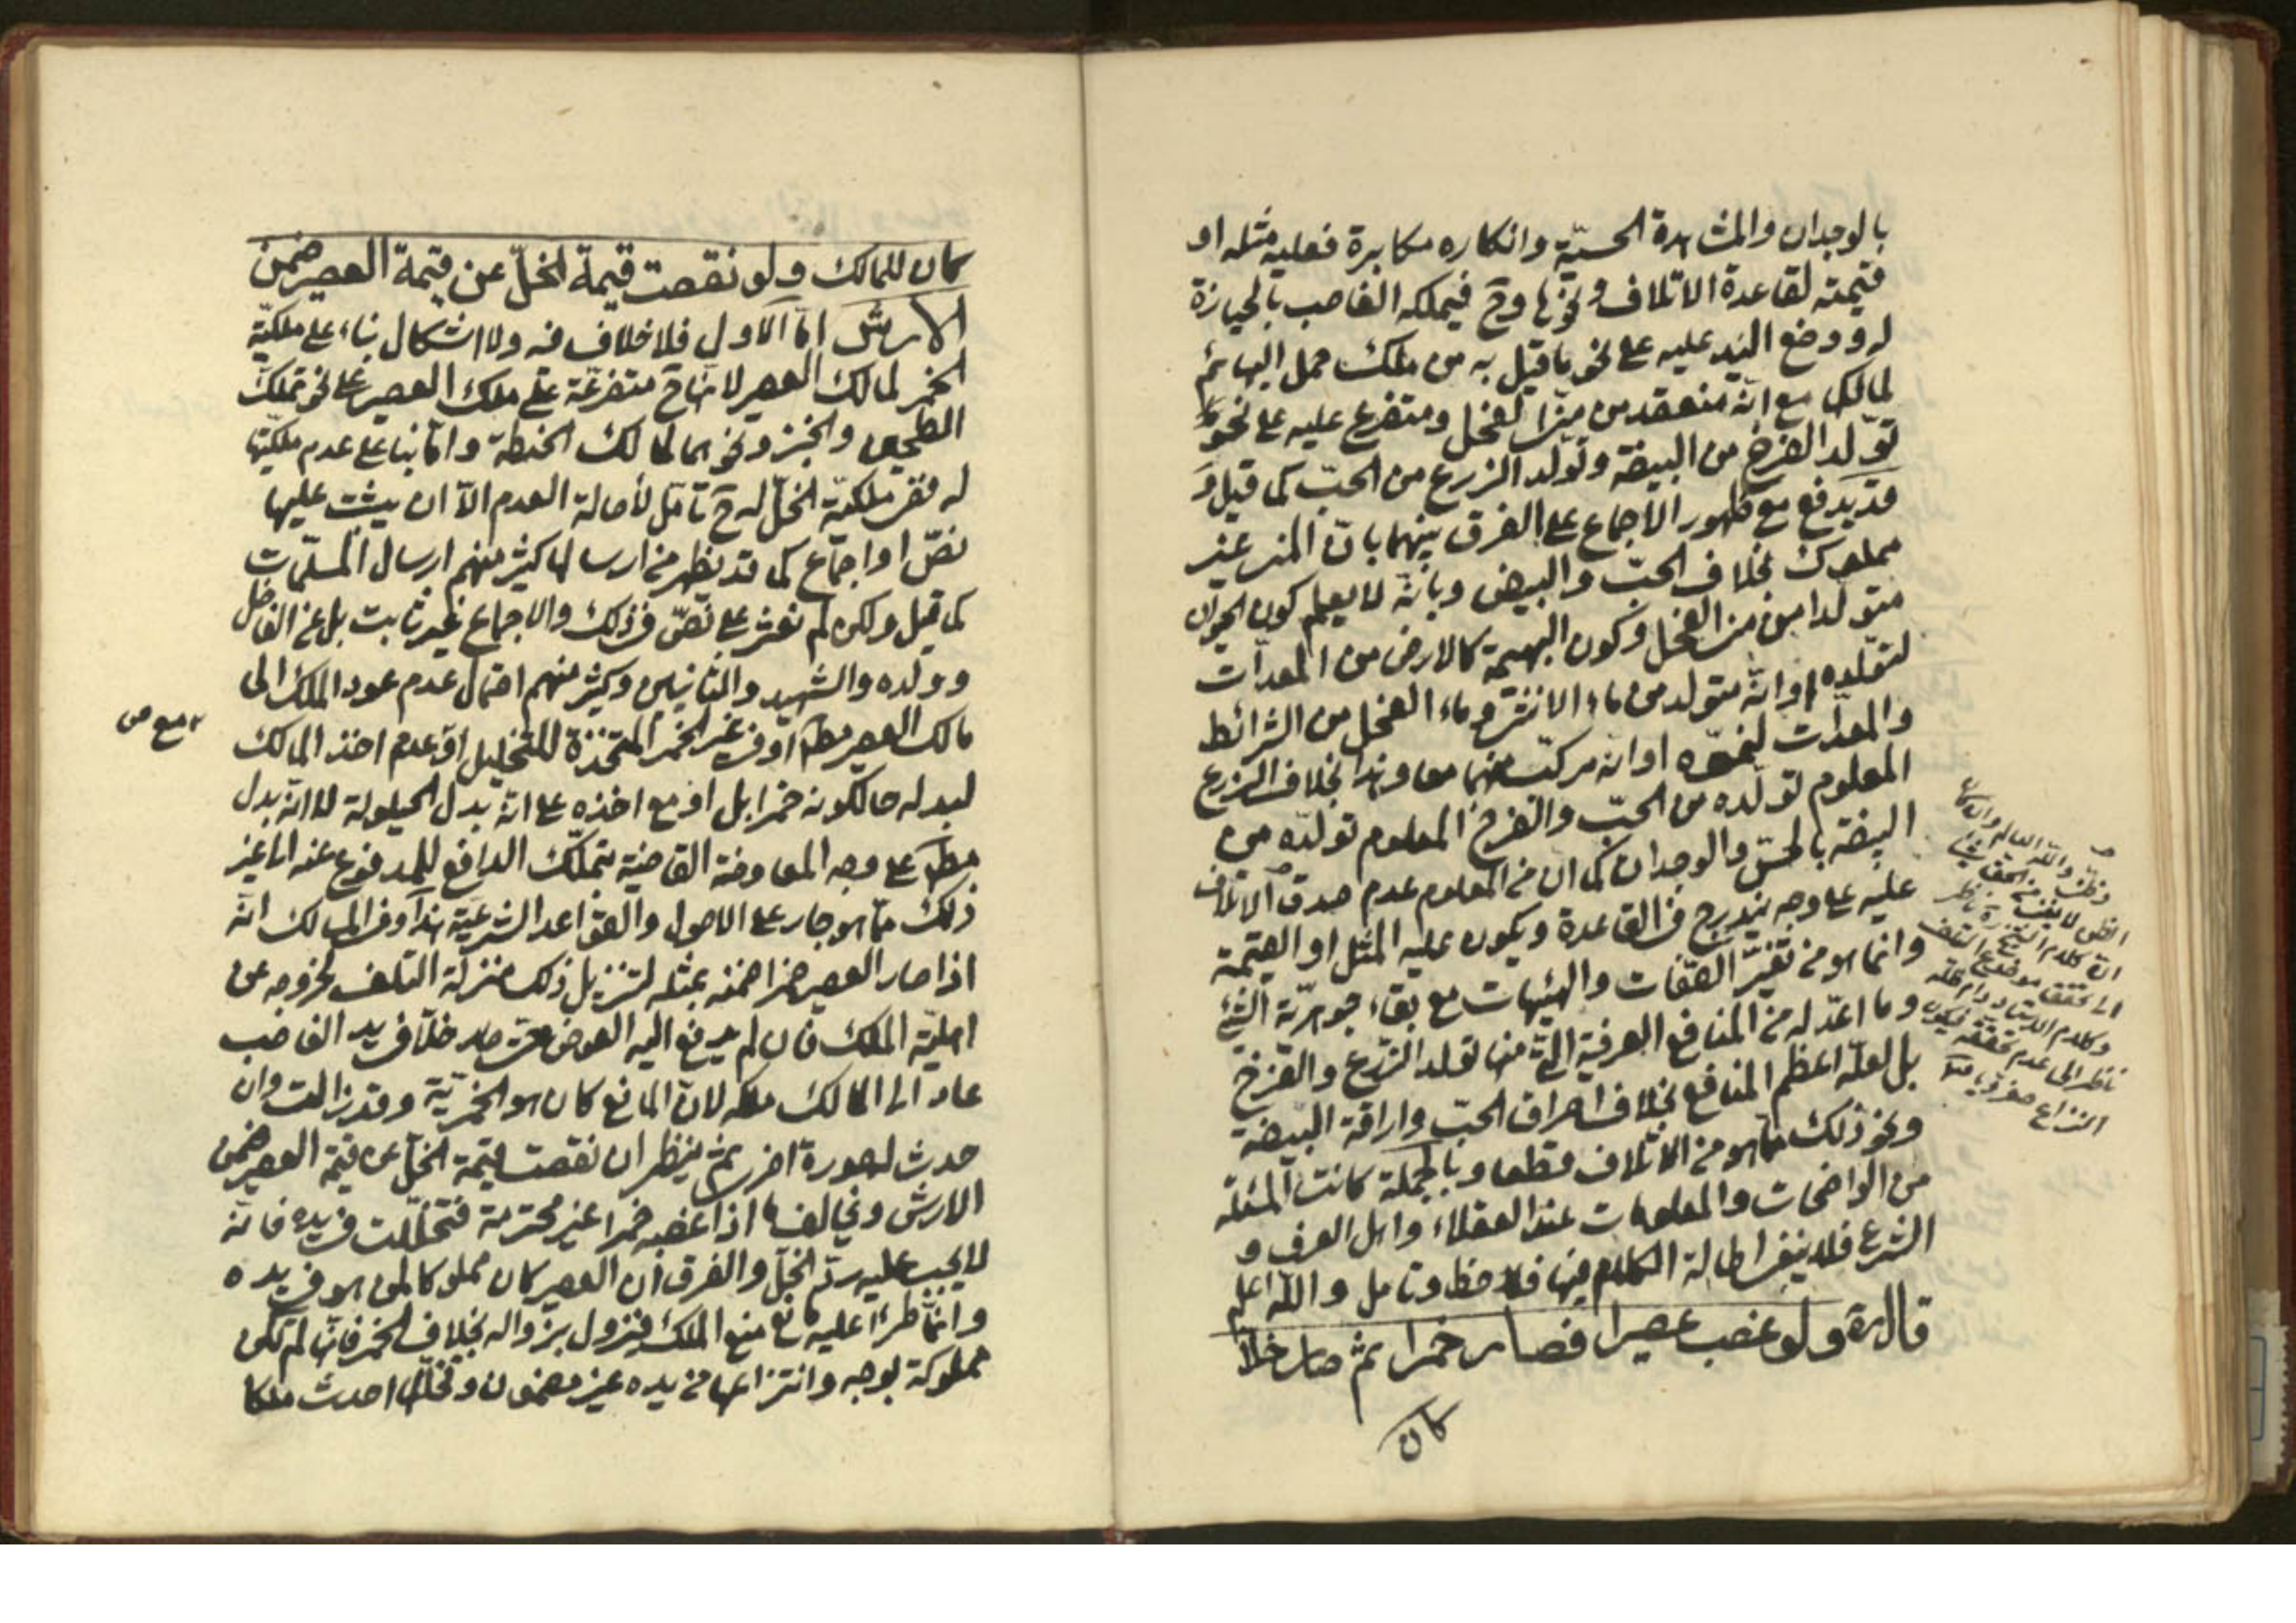 بالوجدان والمشاهدة الحسيّة وانكاره مكابرة فعليه مثله او
قيمته لقاعدة الاتلاف ونحوها وح فيملكه الغاصب بالحيازة
له ووضع اليد عليه على نحو ما قيل به من ملك حمل البهائم
لمالك مع انّه منعقد من منيّ الفحل ومتفرع عليه على نحو
تولّد الفرخ من البيضة وتولّد الزرع من الحبّ كما قيل و
قد يدفع مع ظهور الاجماع على الفرق بينهما بانّ المنى غير
مملوك بخلاف الحبّ والبيض وبانّه لا يعلم كون الحيوان
متولّدا من منى الفحل وكون البهيمة كالارض من المعدّات
لتولّده او انّه متولد من ماء الانثى وماء الفحل من الشرائط
والمعدّات لنموّه او انّه مركّب منهما معا وهذا بخلاف الزرع
المعلوم تولّده من الحبّ والفرخ المعلوم تولّده من
البيضة بالحسّ والوجدان كما انّ من المعلوم عدم صدق الاتلاف
عليه على وجه يندرج في القاعدة ويكون عليه المثل او القيمة
وانما هو من تغيّر الصّفات والهيئات مع بقاء جوهريّة الشئ
وما اعدّ له من المنافع العرفية الّتي منها تولد الزّرع والفرخ
بل لعلّه اعظم المنافع بخلاف احراق الحبّ واراقة البيضة
ونحو ذلك ممّا هو من الاتلاف قطعا وبالجملة كانت المسئلة
من الواضحات والمعلومات عند العقلاء واهل العرف و
الشرع فلا ينبغى اطالة الكلام فيها فلاحظ وتامل والله اعلم
قال ره ولو غصب عصيرا فصار خمرا ثم صار خلاّ
كان
انّ كلام الشيخ ره ناظر
الى تحقق موضوع التلف
ناظر الى عدم تحققه فيكون
كان للمالك ولو نقصت قيمة الخلّ عن قيمة العصير ضمن
الارش امّا الاول فلا خلاف فيه ولا اشكال بناء على ملكيّة
الخمر لمالك العصير لانّها ح متفرعّة على ملك العصير على نحو تملّك
الطحين والخبز ونحوهما لمالك الحنطة وامّا بناء على عدم ملكيّتها
له ففى ملكيّة الخلّ له ح تامّل لأصالة العدم الّا ان يثبت عليها
نصّ او اجماع كما قد يظهر من ارسالها كثير منهم ارسال المسلّمات
كما قيل ولكن لم نعثر على نصّ في ذلك والاجماع غير ثابت بل عن الفاضل
وولده والشهيد والثانيين وكثير منهم احتمال عدم عود الملك الى
مالك العصير مط او فى غير الخمر المتّخذة للتخليل او عدم اخذ المالك
لبدله حال كونه خمرا بل او مع اخذه على انّه بدل الحيلولة لا انّه بدل
مط على وجه المعاوضة القاضية بتملّك الدافع للمدفوع عنه الى غير
ذلك ممّا هو جار على الاصول والقواعد الشرعيّة هذا وفى المسالك انّه
اذا صار العصير خمرا ضمنه بمثله لتنزيل ذلك منزلة التلف لخروجه عن
اهليّة الملك فان لم يدفع اليه العوض حتى صار خلّا فى يد الغاصب
عاد الى المالك ملكه لانّ المانع كان هو الخمريّة وقد زالت وان
حدث له صورة اخرى ثم ينظر ان نقصت قيمة الخلّ عن قيمة العصير ضمن
الارش ويخالف ما اذا غصبه خمرا غير محترمة فتخلّلت فى يده فانه
لا يجب عليه ردّ الخلّ والفرق ان العصير كان مملوكا لمن هو فى يده
وانّما طرأ عليه مانع منع الملك فيزول بزواله بخلاف الخمر فانّها لم تكن
مملوكة بوجه وانتزاعها من يده غير مضمون وتخلّلها احدث ملكا
مع ص